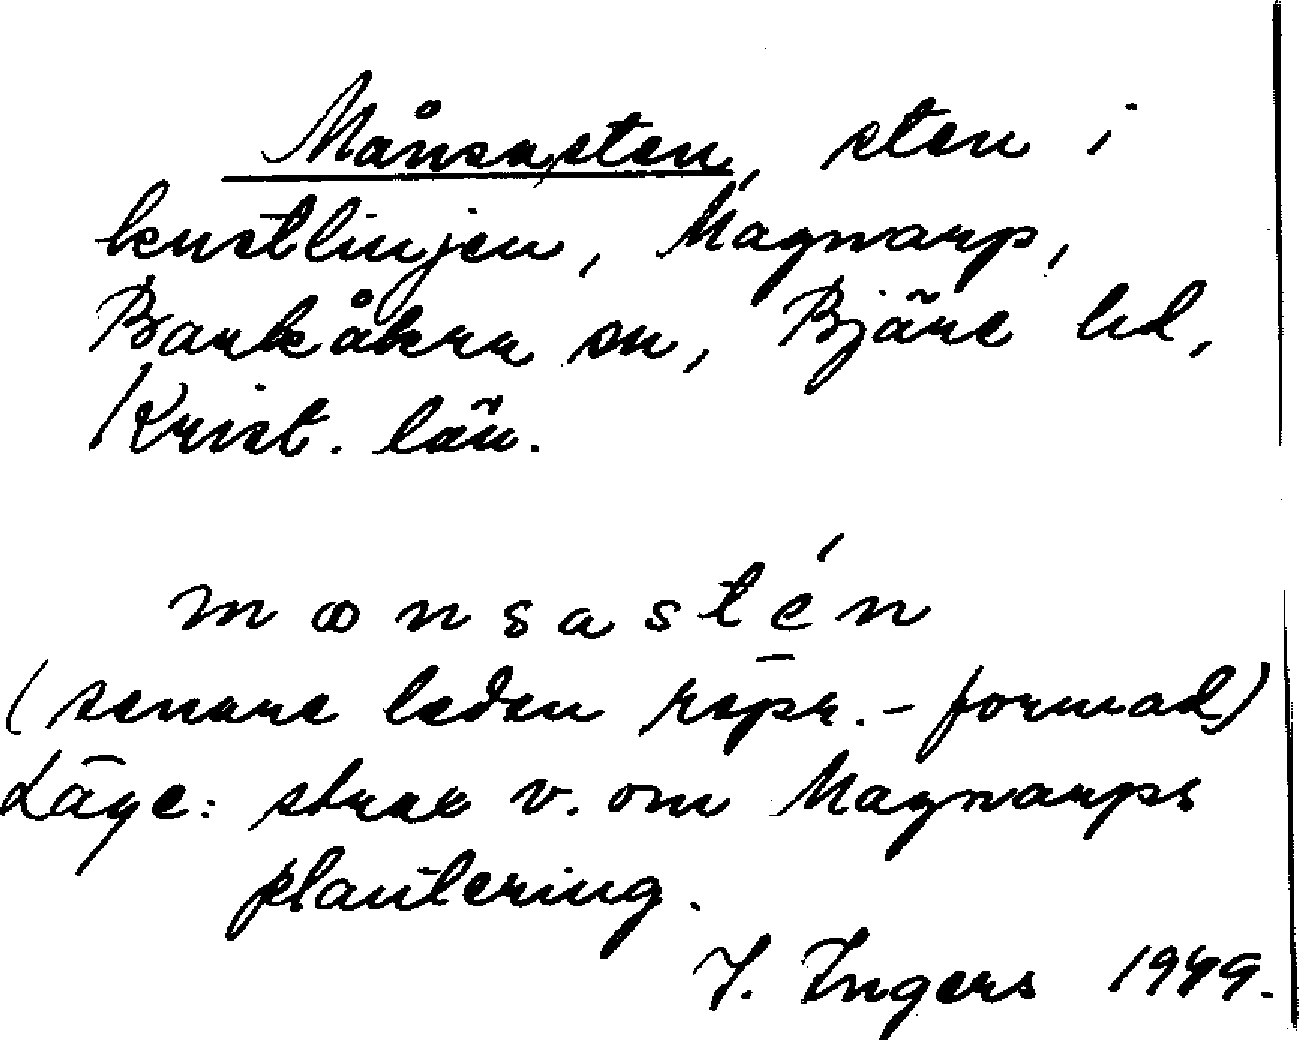 Månsasten, sten i
kustlinjen, Magnarp,
Barkåkra sn, Bjäre hd,
Krist. län.
mɷnsasté̱n
(senare leden rspr.-formad)
Läge: strax v. om Magnarps
plantering.
I. Ingers 1949.